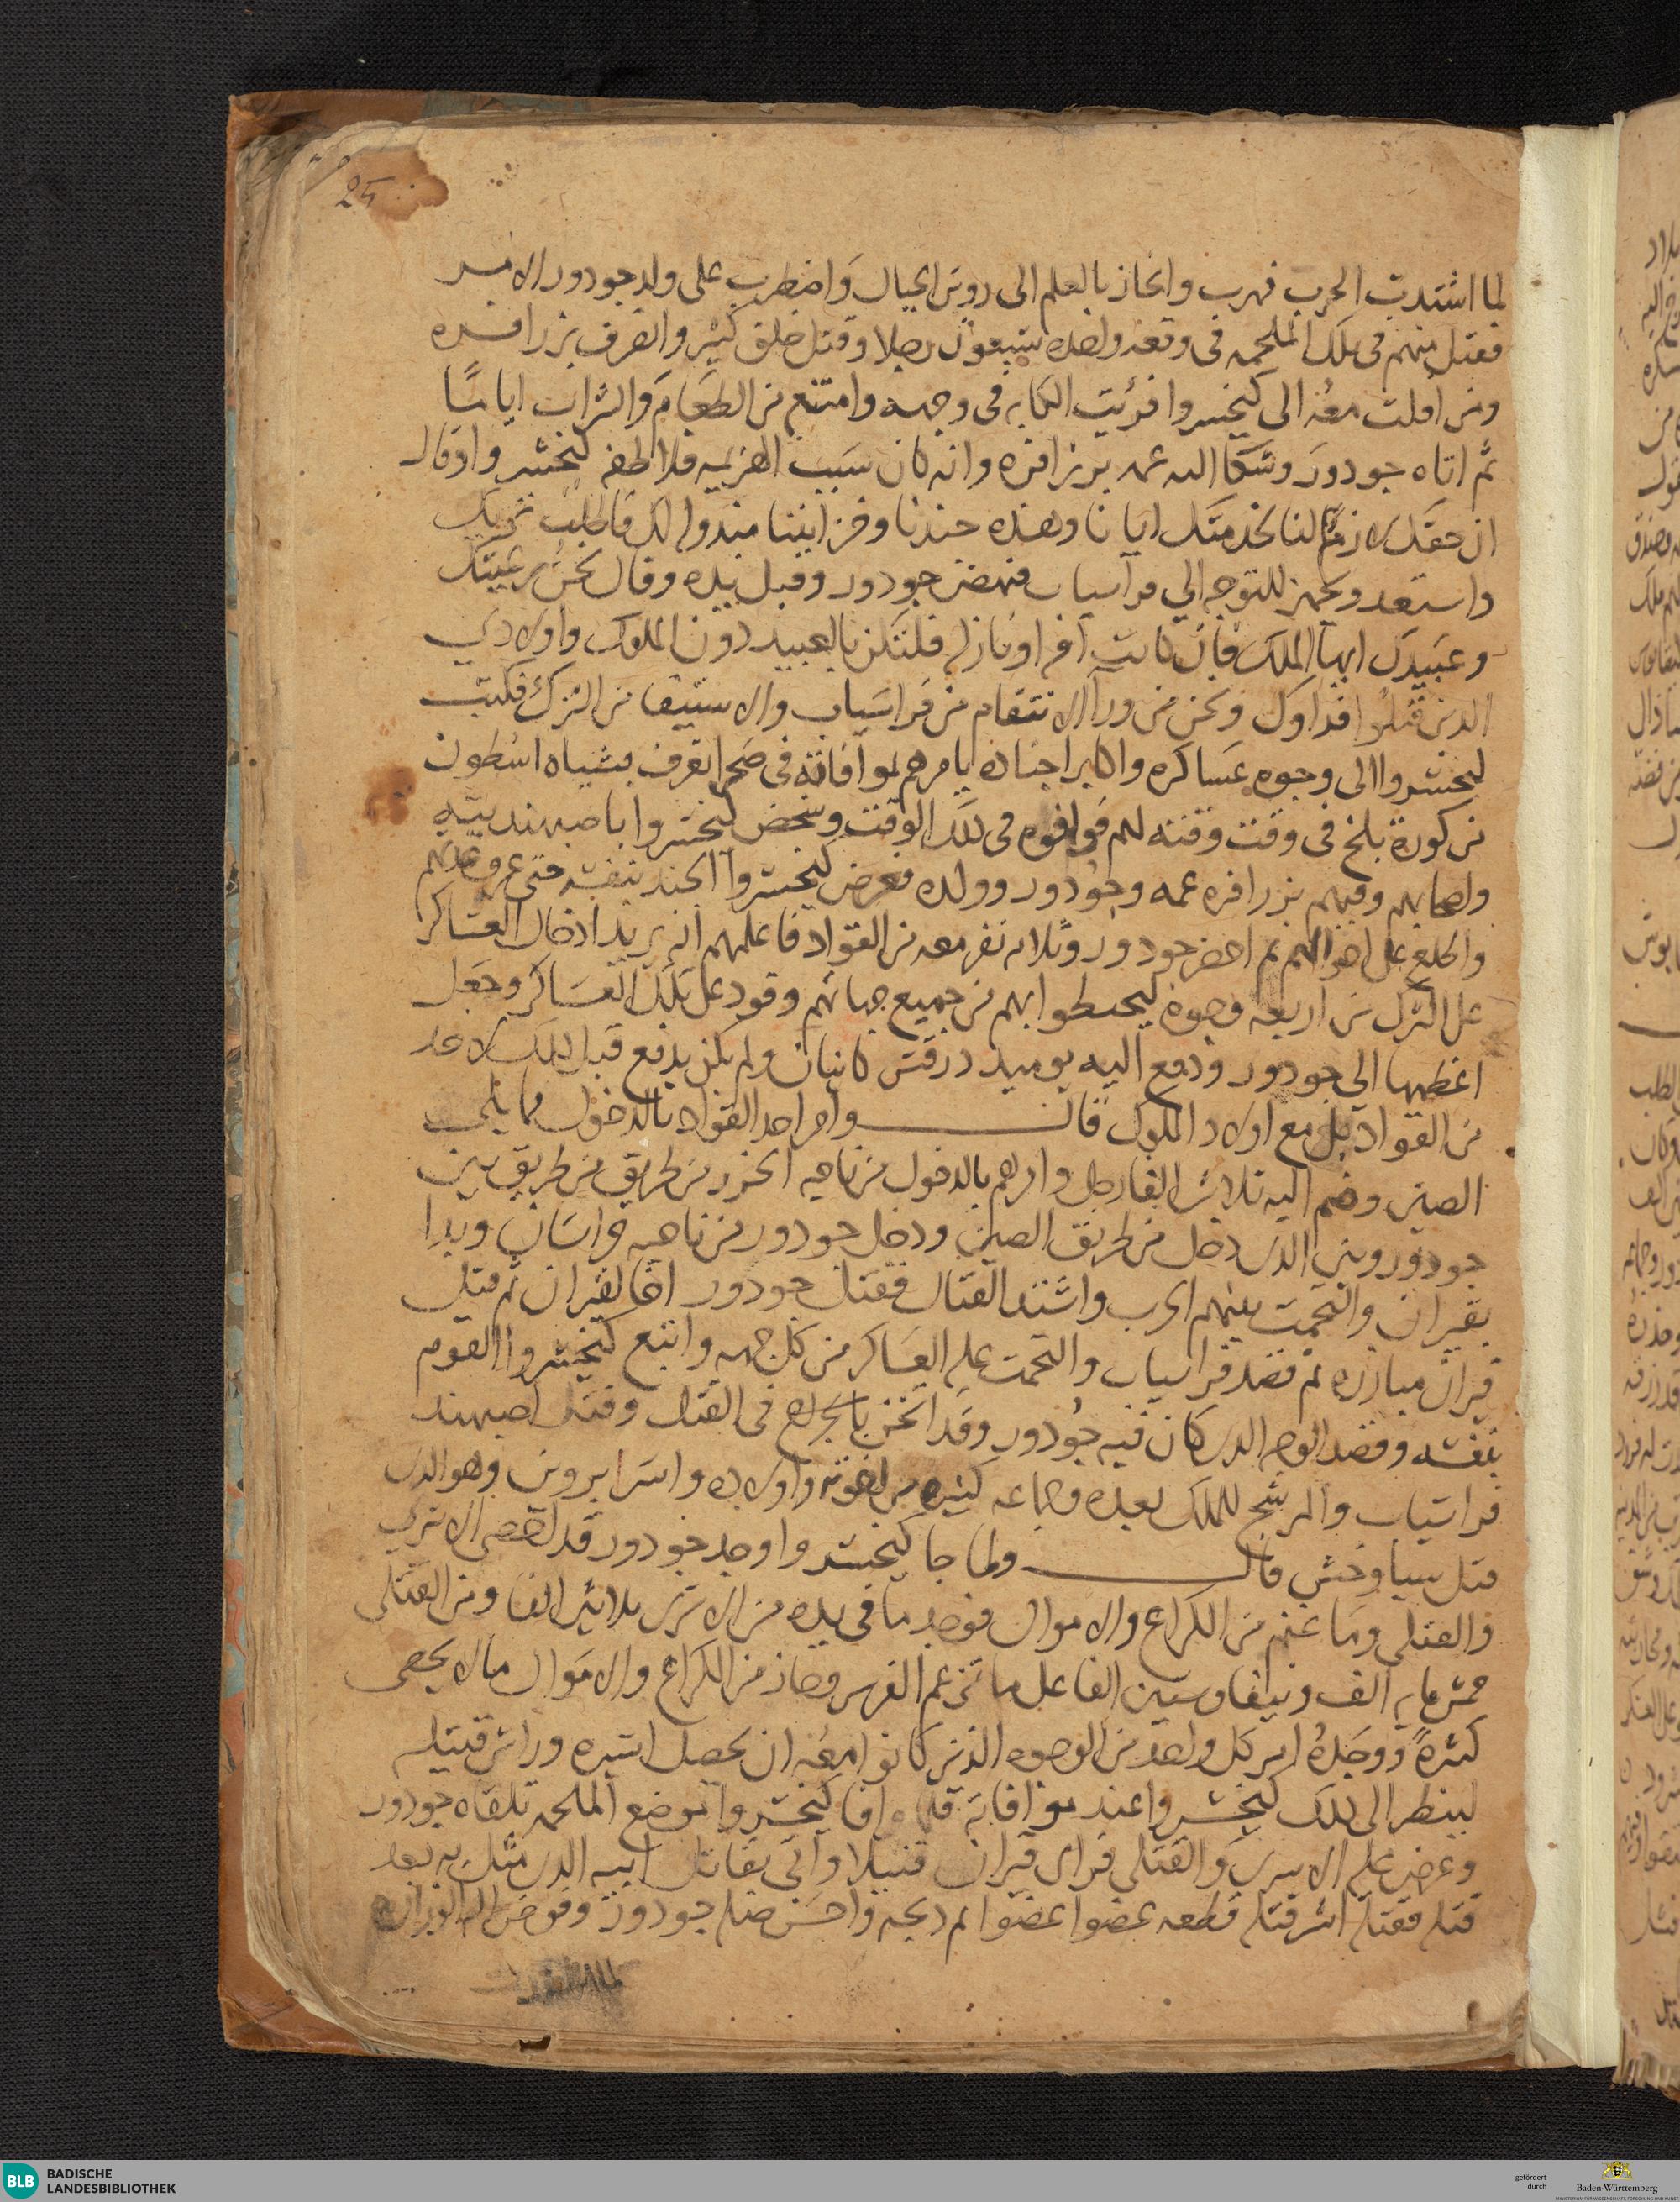 25
لما اشتدت الحرب فهرب وانحاز بالعلم الى روس الجبال واضطرب على ولد جودور الامر
فقتل منهم في تلك الملحمه في وقعه واحده سبعون رجلا وقتل خلق كثير وانصرف برزافره
ومن افلت معه الى كيخسروا فرئيت الكابه في وجهه وامتنع من الطعام والشراب اياما
ثم اتاه جودور وشكا اليه عمه برزافره وانه كان سبب الهزيمه فلاطفه كيخسروا وقال
ان حقك لازم لنا لخدمتك ابانا وهذه جندنا وخزايننا مبذوله لك فاطلب ترتك
واستعد وتجهز للتوجه الي فراسياب فنهض جودور وقبل يده وقال نحن رعيتك
وعبيدك ايها الملك فان كانت افه او نازله فلتكن بالعبيد دون الملوك واولادي
الذين قتلوا فداوك ونحن من ورآ الانتقام من فراسياب والاستيفا من الترك فكتب
كيخسروا الى وجوه عساكره واكابر اجناده يامرهم بموافاته في صحرا تعرف بشياه اسطون
من كورة بلخ في وقت وقته لهم فوافوه في ذلك الوقت وشخص كيخسروا باصبهنديته
واصحابهم وفيهم برزافره عمه وجودور وولده فعرض كيخسروا الجند بنفسه حتى عرف عددهم
واطلع على احوالهم ثم احضر جودور وثلاثه نفر معه من القواد فاعلمهم انه يريد ادخال العساكر
على الترك من اربعه وجوه ليحيطوا بهم من جميع جهاتهم وقود على تلك العساكر وجعل
اعظمها الى جودور ودفع اليه يوميذ درفش كابيان ولم يكن يدفع قبل ذلك لاحد
من القواد بل مع اولاد الملوك قال وامر احد القواد بالدخول مما يلي
الصين وضم اليه ثلاثين الف رجل وامرهم بالدخول من ناحيه الخزر من طريق من طريق بين
جودور وبين الذي دخل من طريق الصين ودخل جودور من ناحيه خراسان وبدا
بفيران والتحمت بينهم الحرب واشتد القتال فقتل جودور اخا لفيران ثم قتل
فيران مبارزه ثم قصد فراسياب والتحمت عليه العساكر من كل جهه واتبع كيخسروا القوم
بنفسه وقصد الوجه الذي كان فيه جودور وقد اثخن بالجراح في القتال وقتل اصبهند
فراسياب والمرشح للملك بعده وجماعه كثيره من اخوته واولاده واسر ابروين وهو الذي
قتل سياوخش قال ولما جا كيخسروا وجد جودور قد احصى الاسرى
والقتلى وما غنم من الكراع والاموال فوجد ما في يده من الاسرى ثلاثين الفا ومن القتلى
خمس مايه الف ونيفا وستين الفا على ما تزعم الفرس وحاز من الكراع والاموال ما لا يحصى
كثرةً ووجدهُ امر كل واحد من الوجوه الذين كانوا معه ان يحصل اسيره وراس قتيله
لينظر الى ذلك كيخسروا عند موافاته فلما وافا كيخسروا موضع الملحمه تلقاه جودور
وعرض عليه الاسرى والقتلى فراى فيران قتيلا واتى بقاتل ابيه الذي مثل به بعد
قتله فقتله اشر قتله قطعه عضوا عضوا ثم ذبحه واحسن صله جودور وفوض اليه الوزاره